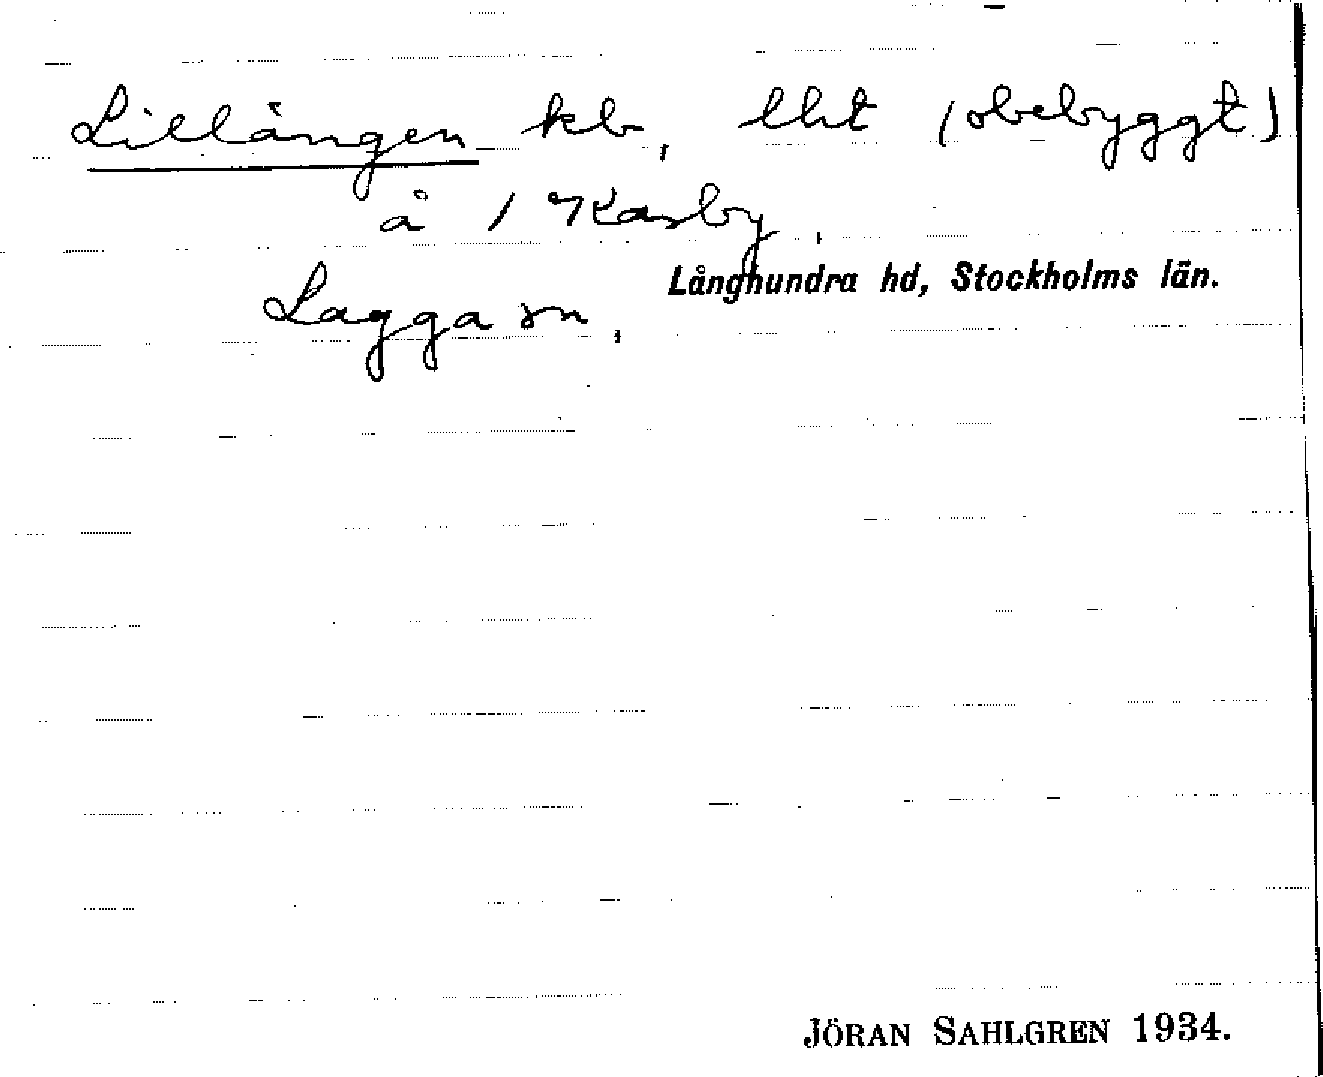 Lillängen kb, lht (obebyggt)
å 1 Kasby,
Långhundra hd, Stockholms län.
Lagga sn,
JÖRAN SAHLGREN 1934.